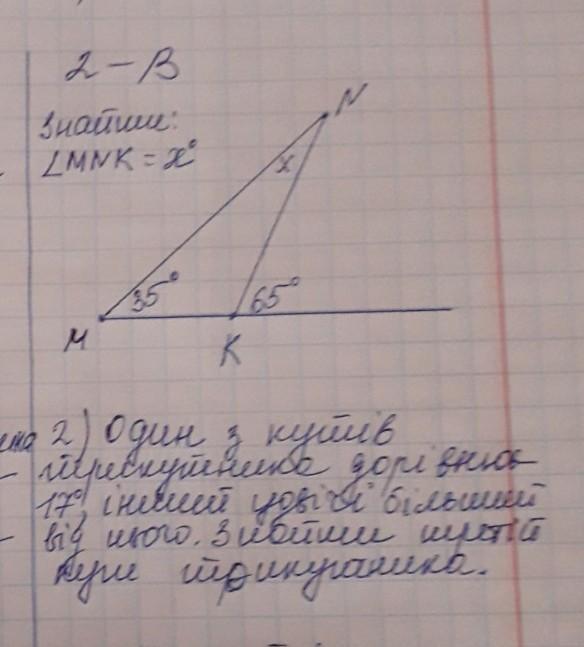 2 - В
Знайти:
∠MNK = x°
N
x
35°
65°
M
K
2) Один з кутів
трикутника дорівнює
17°, інший удвічі більший
від нього. Знайти третій
кут трикутника.